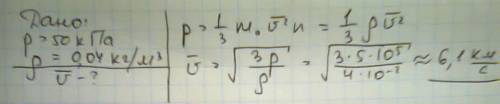 Дано:
p = 50 кПа
ρ = 0,04 кг/м³
v̅ - ?
p = 1/3 m₀ v̅² n = 1/3 ρ v̅²
v̅ = √(3p/ρ) = √(3·5·10⁵/4·10⁻²) ≈ 6,1 км/с